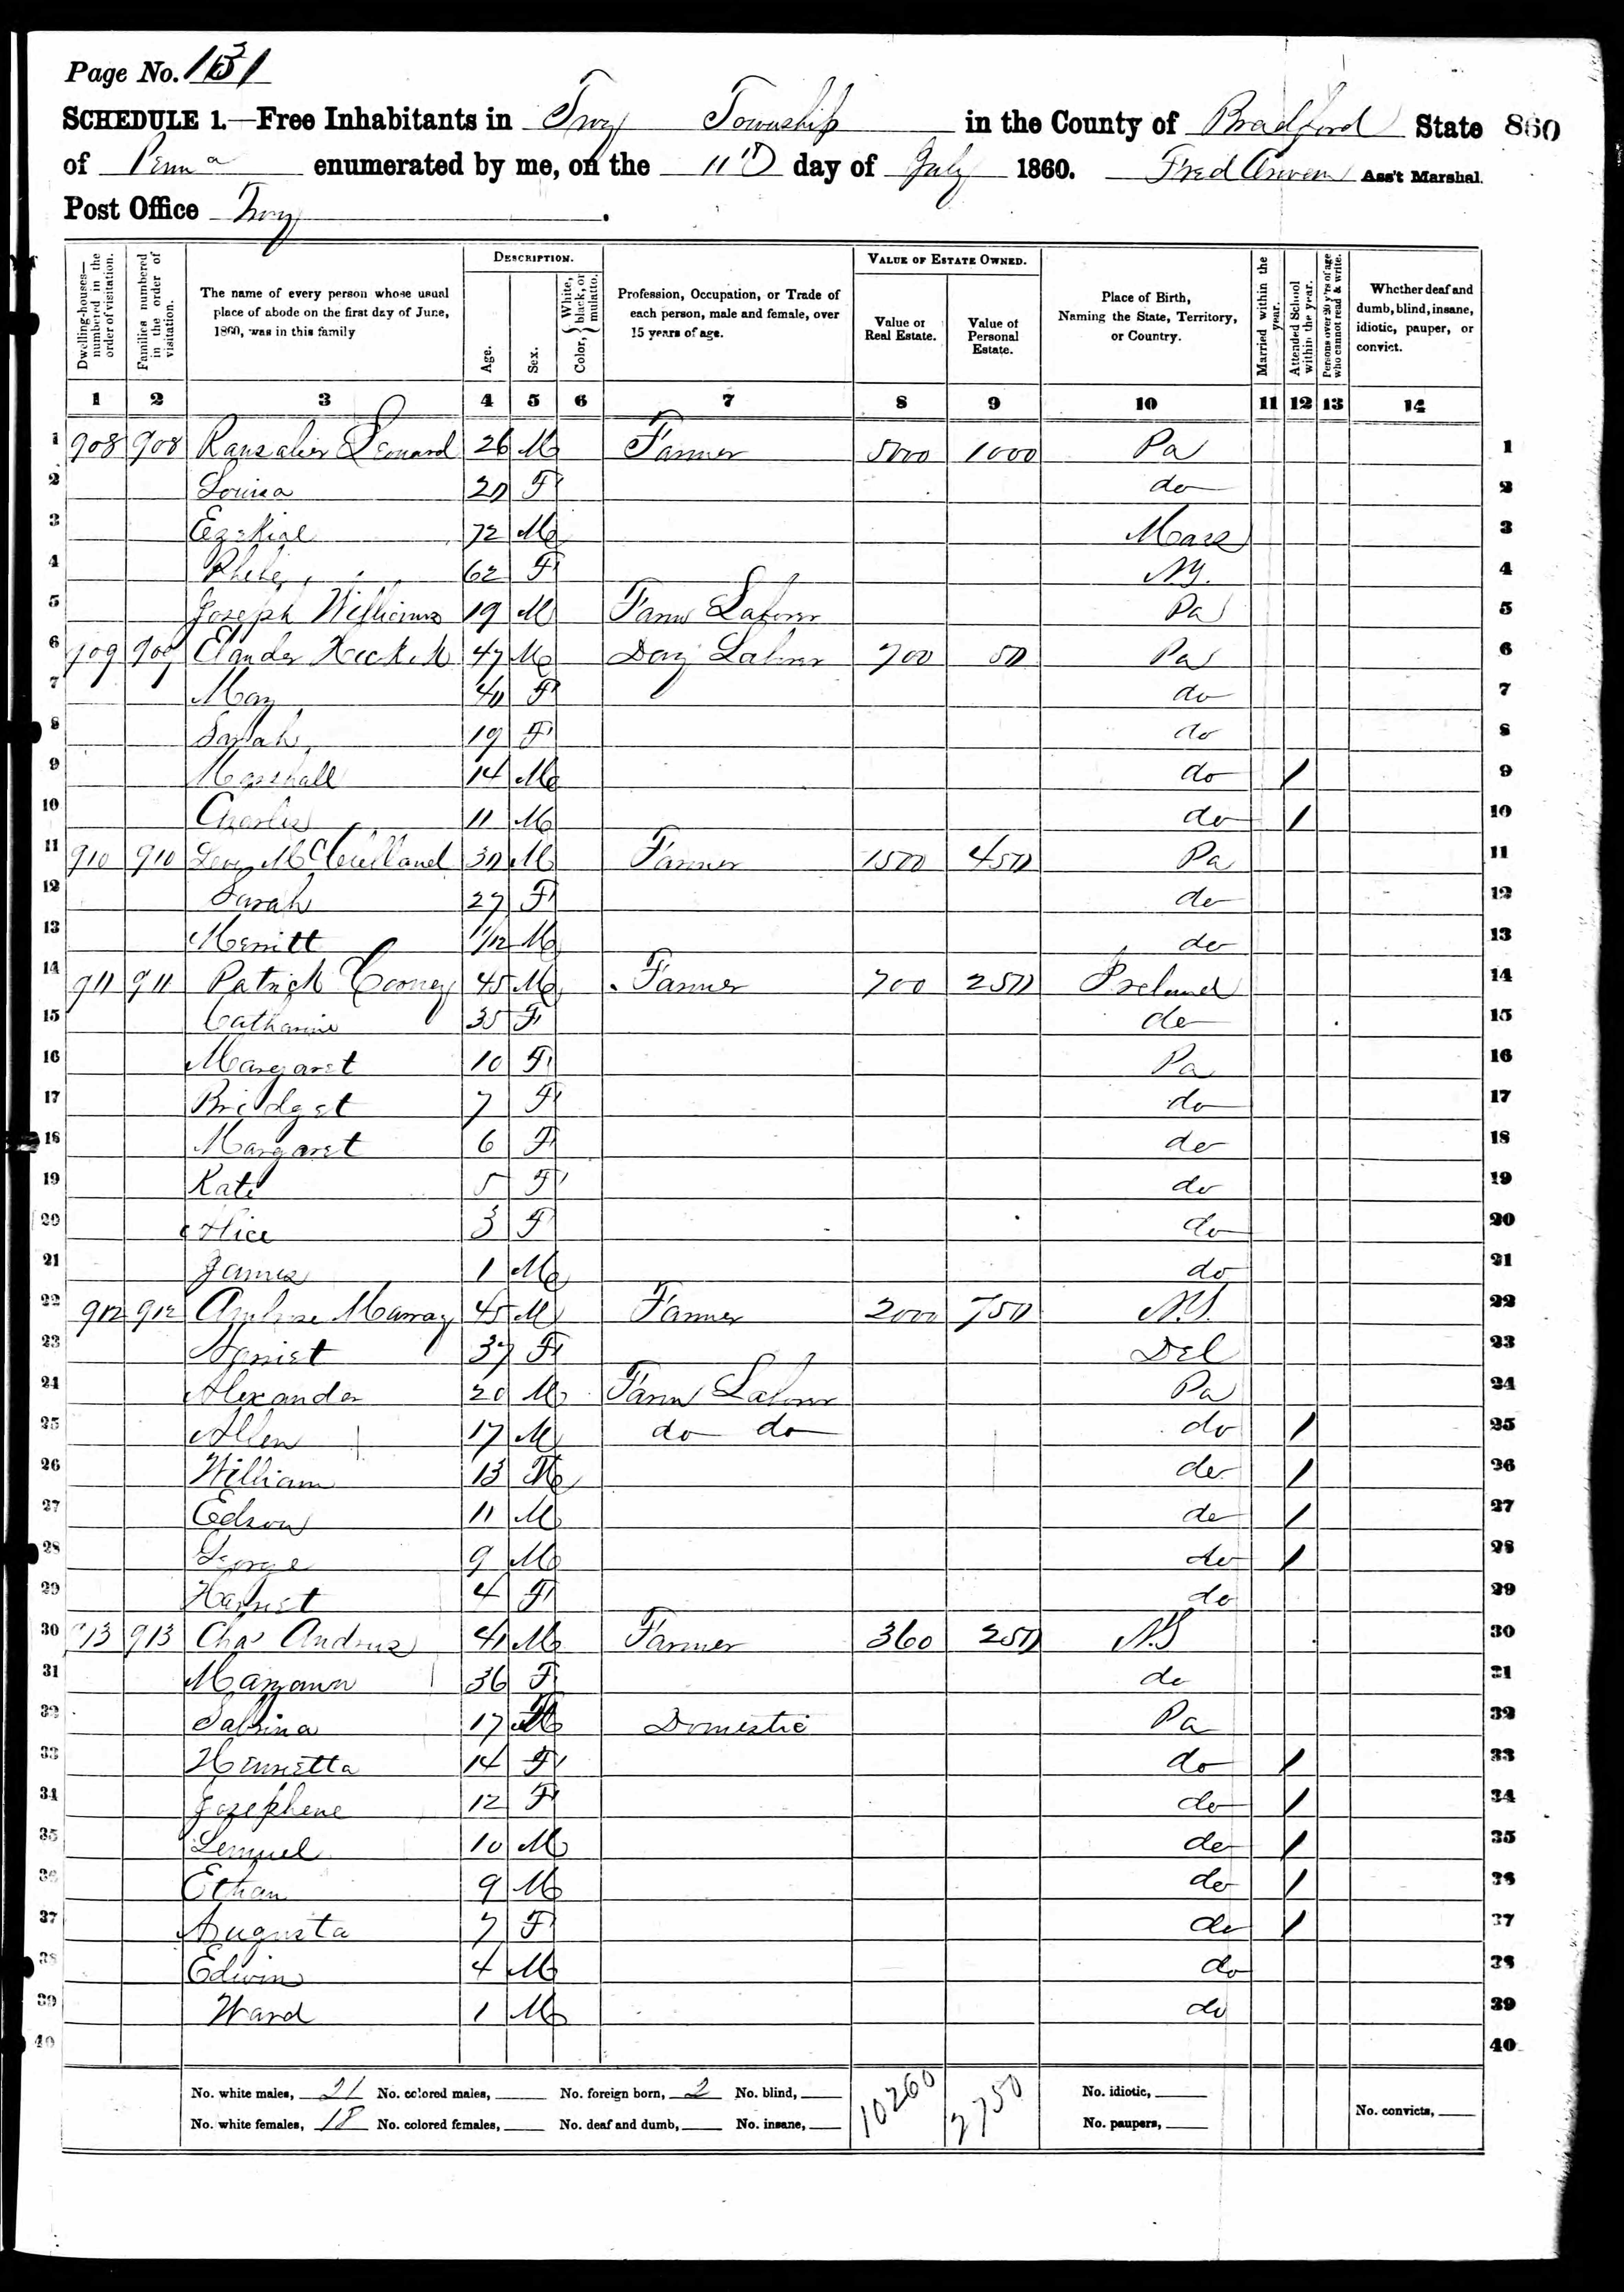 Page No. 131
SCHEDULE 1.—Free Inhabitants in Troy Township in the County of Bradford State 860
of Penna enumerated by me, on the 11th day of July 1860. Fred Ass't Marshal.
Post Office Troy.
DESCRIPTION. VALUE OF ESTATE OWNED.
Dwelling-houses—numbered in the order of visitation. Families numbered in the order of visitation. The name of every person whose usual place of abode on the first day of June, 1860, was in this family Age. Sex. Color, { White, black, or mulatto. Profession, Occupation, or Trade of each person, male and female, over 15 years of age. Value of Real Estate. Value of Personal Estate. Place of Birth, Naming the State, Territory, or Country. Married within the year. Attended School within the year. Persons over 20 y'rs of age who cannot read & write. Whether deaf and dumb, blind, insane, idiotic, pauper, or convict.
1 2 3 4 5 6 7 8 9 10 11 12 13 14
1 908 908 Ransalier Leonard 26 M Farmer 5000 1000 Pa 1
2 Louisa 20 F do 2
3 Ezekiel 72 M Mass 3
4 Phebe 62 F NY. 4
5 Joseph Williams 19 M Farm Laborer Pa 5
6 909 909 47 M Day Laborer 700 50 Pa 6
7 Mary 40 F do 7
8 Sarah 19 F do 8
9 Marshall 14 M do / 9
10 Charles 11 M do / 10
11 910 910 Levi McClelland 30 M Farmer 1500 450 Pa 11
12 Sarah 27 F do 12
13 Merritt 1/12 M do 13
14 911 911 Patrick Cooney 45 M Farmer 700 250 Ireland 14
15 Catharine 35 F do 15
16 Margaret 10 F Pa 16
17 Bridget 7 F do 17
18 Margaret 6 F do 18
19 Kate 5 F do 19
20 Alice 3 F do 20
21 James 1 M do 21
22 912 912 Ambrose Murray 45 M Farmer 2000 750 N.Y. 22
23 Harriet 37 F Del 23
24 Alexander 20 M Farm Laborer Pa 24
25 Allen 17 M do do do / 25
26 William 13 M do / 26
27 Edson 11 M do / 27
28 George 9 M do / 28
29 Harriet 4 F do 29
30 913 913 Chas Andrus 41 M Farmer 360 250 N.Y 30
31 Maryann 36 F do 31
32 Sabrina 17 Domestic Pa 32
33 Henrietta 14 F do / 33
34 Josephene 12 F do / 34
35 Lemuel 10 M do / 35
36 Ethan 9 M do / 36
37 Augusta 7 F do / 37
38 Edwin 4 M do 38
39 Ward 1 M do 39
40 40
No. white males, 21 No. colored males, No. foreign born, 2 No. blind, 10260 2750 No. idiotic,
No. white females, 18 No. colored females, No. deaf and dumb, No. insane, No. paupers, No. convicts,